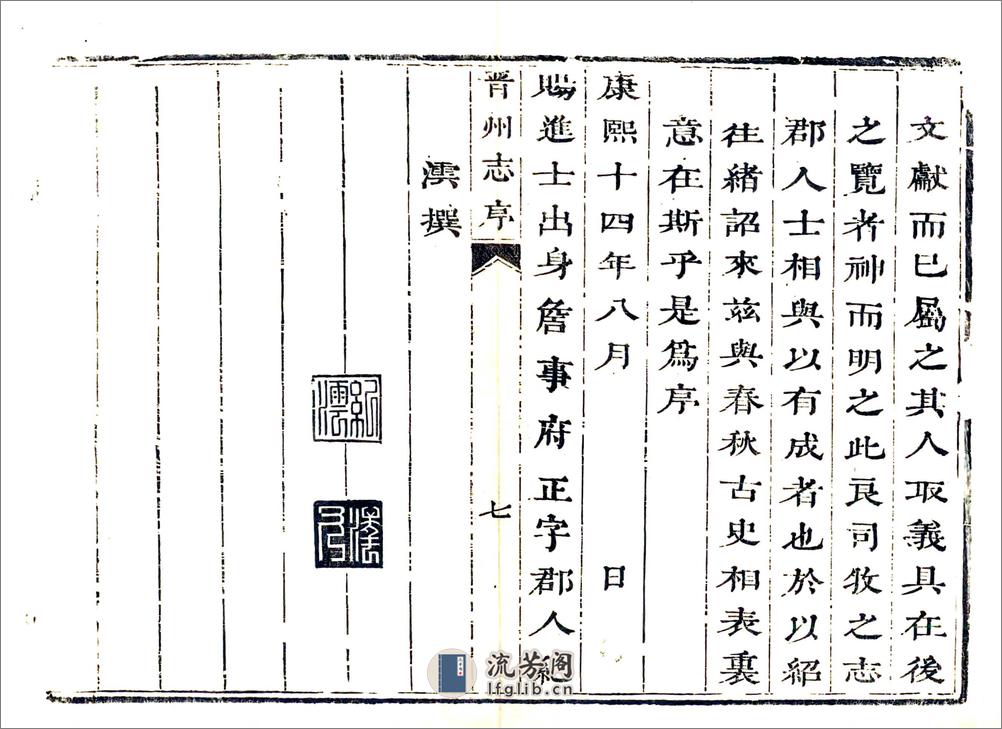 文獻而已屬之其人取義具在後
之覽者神而明之此良司牧之志
郡人士相與以有成者也於以紹
往緒詔來茲與春秋古史相表裏
意在斯乎是爲序
康熙十四年八月　　　　日
賜進士出身詹事府正字郡人紀
晋州志序
七
澐撰
紀澐
流芳阁
lfglib.cn